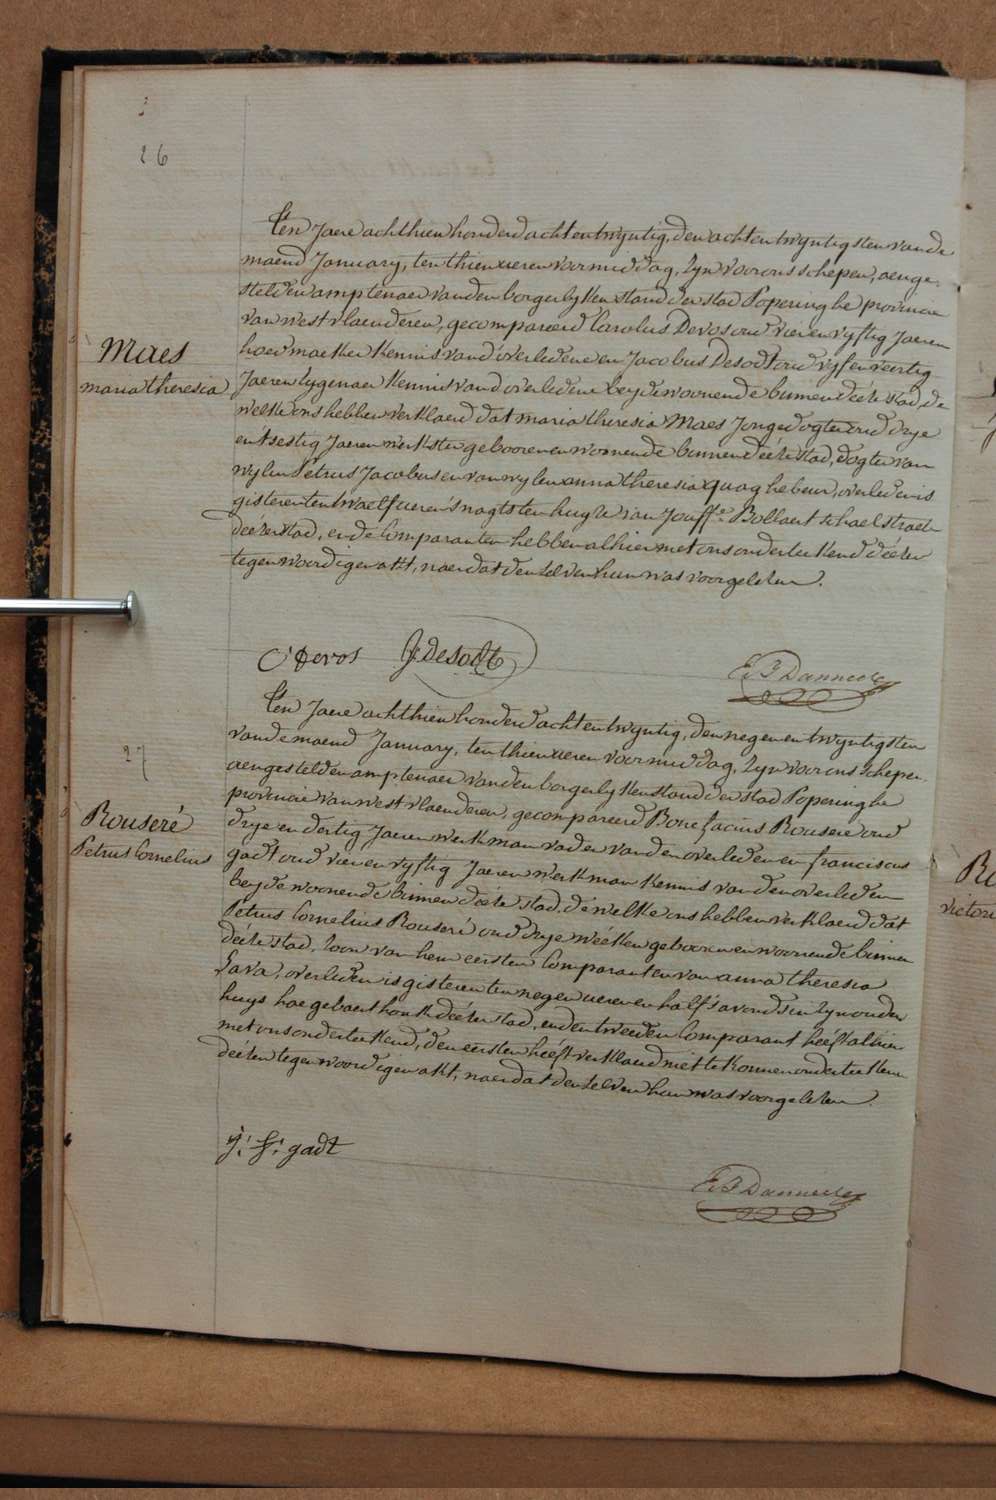 26
Ten Jaere achthien honderd acht en twyntig, den acht en twyntigsten van de
maend January, ten thien ueren voormiddag, zyn voor ons schepen, aenge-
stelden amptenaer van den borgerlyken stand der stad Poperinghe provincie
van westvlaenderen, gecompareerd Carolus Devos oud vier en vyftig Jaeren
hoedmaeker kennis van d'overledene en Jacobus Desodt oud vyf en veertig
Jaeren eygenaer kennis van d'overledene beyde woonende binnen déze stad, de
welke ons hebben verklaerd dat maria theresia Maes Jonge dogter oud drye
en t'sestig Jaeren werkster gebooren en woonende binnen déze stad, dogter van
wylen Petrus Jacobus en van wylen anna theresia quaghebeur, overleden is
gisteren ten twaelf ueren s'nagts ten huyze van Jouff.e Bollaert schaelstraet
dezer stad, en de Comparanten hebben alhier met ons onderteekend dézen
tegenwoordigen akt, naer dat den zelven hun was voorgelezen.
Maes
maria theresia
C Devos J. Desodt
E. F. Danneele
27
Ten Jaere achthien honderd acht en twyntig, den negen en twyntigsten
van de maend January, ten thien ueren voormiddag, zyn voor ons schepen,
aengestelden amptenaer van den borgerlyken stand der stad Poperinghe
provincie van westvlaenderen, gecompareerd Bonefacius Rouseré oud
drye en dertig Jaeren werkman vader van den overleden en franciscus
gadt oud vier en vyftig Jaeren werkman kennis van den overleden
beyde woonende binnen déze stad, de welke ons hebben verklaerd dat
Petrus Cornelius Rouseré oud drye wéeken gebooren en woonende binnen
déze stad, zoon van hem eersten Comparant en van anna theresia
Lava, overleden is gisteren ten negen ueren en half s'avonds in zyn ouders
huys hoegebaert hoek dézer stad, en den tweeden Comparant heéft alhier
met ons onderteekend, den eersten heéft verklaerd niet te konnen onderteekenen
dézen tegenwoordigen akt, naer dat den zelven hun was voorgelezen.
Rouseré
Petrus Cornelius
j. f. gadt
E. F. Danneele
Ro
victori